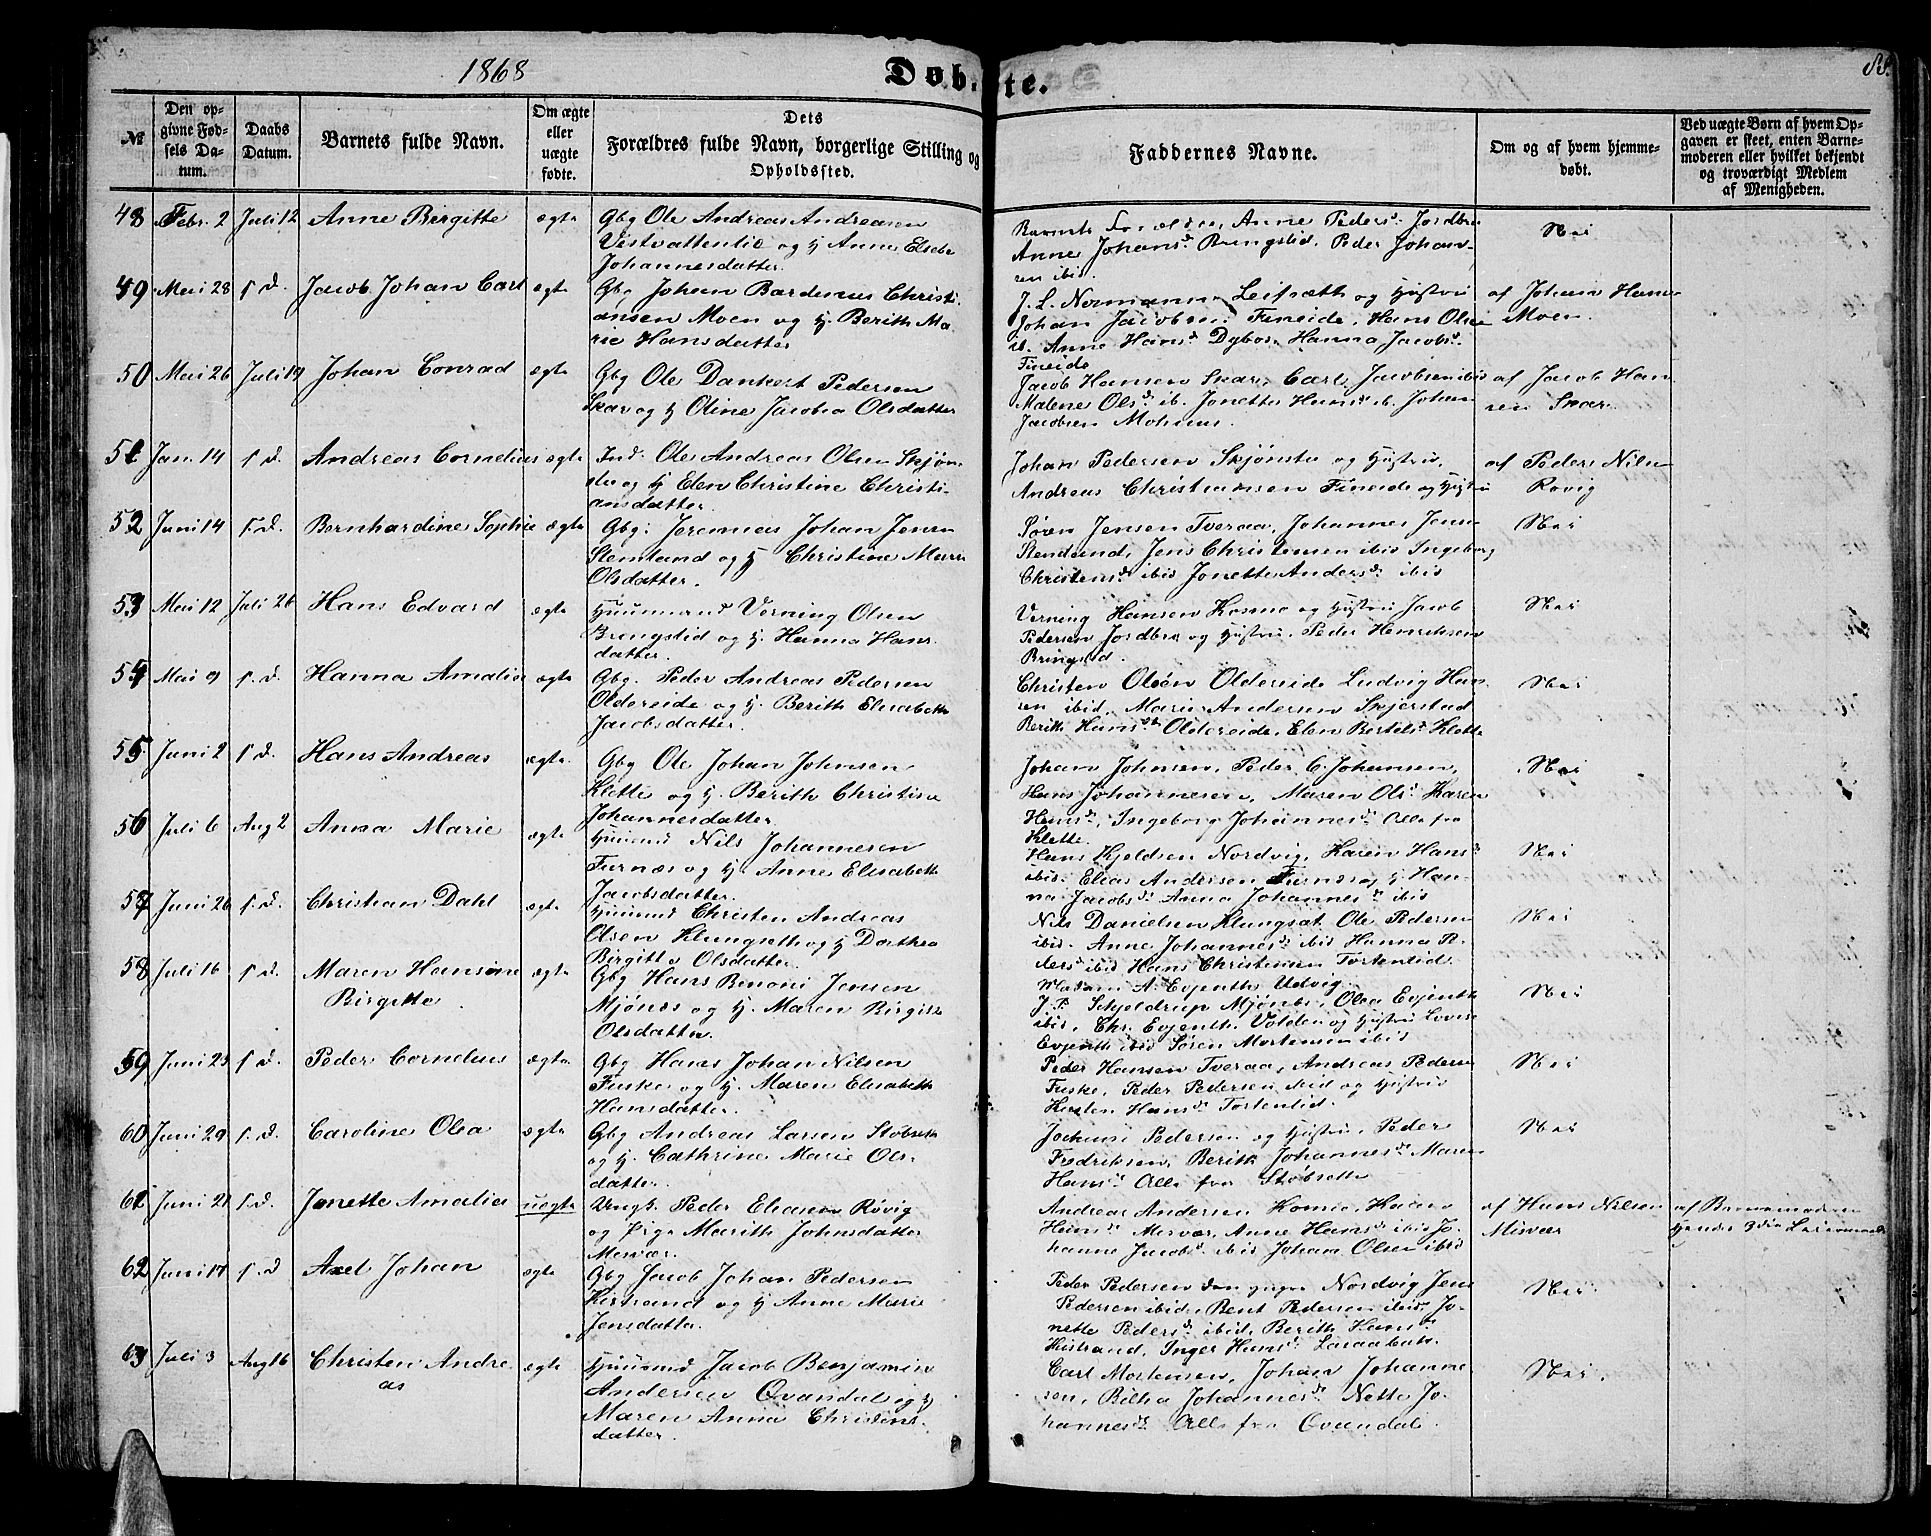 1868
Døbte.
88.
№
Den opgivne Fødsels Datum.
Daabs Datum.
Barnets fulde Navn.
Om ægte eller uægte fødte.
Dets Forældres fulde Navn, borgerlige Stilling og Opholdssted.
Faddernes Navne.
Om og af hvem hjemmedøbt.
Ved uægte Børn af hvem Opgaven er skeet, enten Barnemoderen eller hvilket bekjendt og troværdigt Medlem af Menigheden.
48 Febr. 2 Juli 12 Anne Birgitte ægte
Gbg Ole Andreas Andreasen
Vestvattenlie og H Anne Elsebe
Johannesdatter.
Barnets Forældre, Anne Pedersd. Jordbru
Anne Johansd. Bringslid. Peder Johan-
sen ibid.
Nei
49 Mai 28 s. d. Jacob Johan Carl ægte
Gbg Johan Bardinus Christi-
ansen Moen og H. Berith Ma-
rie Hansdatter
J. L. Normann Leifsæth og Hustru
Johan Jacobsen Fineide, Hans Olsen
ib. Anne Hansd. Hanna Jacobsd.
Fineide
af Johan Hansen
Moen.
50 Mai 26 Juli 19 Johan Conrad ægte
Gbg Ole Dankert Pedersen
Skar og H Oline Jacobia Olsdatter
Jacob Hansen Skar, Carl Jacobsen ibid
Malene Olsd. ib. Jonette Hansd. ib. Johan
Jacobsen
af Jacob Han-
sen Skar
51 Jan. 14 s. d. Andreas Cornelius ægte
Ind. Ole Andreas Olsen Skjøn-
sta og H Elen Christine Christi-
ansdatter.
Johan Pedersen Skjønsta og Hustru,
Andreas Christiansen Fineide og Hustru
af Peder Nilsen
Røvig
52 Juni 14 s. d. Bernhardine Sophie ægte
Gbg. Jeremias Johan Jensen
Stemland og H Christine Marie
Olsdatter.
Søren Jensen Tveraa, Johannes Jensen
Stemland, Jens Christensen ibid Ingeborg
Christensd. ibid Jonette Andersd. ibid
Nei
53 Mai 12 Juli 26 Hans Edvard ægte
Huusmand Verning Olsen
Brengslid og H. Hanna Hans-
datter.
Verning Hansen Kosmo og Hustru Jacob
Pedersen Jordbru og Hustru, Peder Henriksen
Bringslid.
Nei
54 Mai 9 s. d. Hanna Amalia ægte
Gbg. Peder Andreas Pedersen
Oldereide og H. Berith Elisabeth
Jacobsdatter.
Christen Olsen Oldereide Ludvig Han-
sen ibid. Marie Andersen Skjerstad
Berith Hansd. Oldereide, Elen Bertelsd. Klette
Nei
55 Juni 2 s. d. Hans Andreas ægte
Gbg Ole Johan Johnsen
Klette og H. Berith Christine
Johannesdatter
Johan Johnsen, Peder C. Johansen,
Hans Johannesen, Maren Olsd. Karen
Hansd., Ingeborg Johannesd. Alle fra
Klette.
Nei
56 Juli 6 Aug 2 Anna Marie ægte
Huusmd Nils Johannesen
Furnæs og H. Anne Elisabeth
Jacobsdatter.
Hans Kjeldsen Nordvig, Karen Hansd
ibid. Elias Andersen Furnæs og H. Han-
na Jacobsd. Anna Johannesd. ibid
Nei
57 Juni 26 s. d. Christian Dahl ægte
Huusmd Christen Andreas
Olsen Klungseth og H Dorthea
Birgitte Olsdatter.
Nils Danielsen Klungsæt Ole Pedersen
ibid. Anne Johannesd. ibid Hanna P.
ders ibid Hans Christensen Tortenlid.
Nei
58 Juli 16 s. d. Maren Hansine
Birgitte ægte
Gbg Hans Benoni Jensen
Mjønæs og H. Maren Birgitte
Olsdatter.
Madam A. Evjenth Udvig.
J. P. Schjeldrup Mjønæs, Olea Evjenth
ibid, Chr. Evjenth Volden og Hustru Lovise
Evjenth ibid Søren Mortensen ibid
Nei
59 Juni 23 s. d. Peder Cornelius ægte
Gbg Hans Johan Nilsen
Fuske og H. Maren Elisabeth
Hansdatter.
Peder Hansen Tveraa, Andreas Pedersen
Fuske, Peder Pedersen ibid og Hustru
Kirsten Hansd. Tortenlid.
Nei
60 Juni 29 s. d. Caroline Olea ægte
Gbg Andreas Larsen Støbseth
og H. Cathrine Marie Ols-
datter.
Jochum Pedersen og Hustru, Peder
Fredriksen, Berith Johannesd. Maren
Hansd. Alle fra Støbsette
Nei
61 Juni 21 s. d. Jonette Amalia uægte
Ungk. Peder Eliasen Røvig
og Pige Marith Johnsdatter
Mesvær.
Andreas Andersen Karen
Hansd. Mesvær, Anne Hansd. ibid Jo-
hanne Jacobsd. ibid Johan Olsen ibid
af Hans Nilsen
Misvær
af Barnemoderen
hendes 3die Leiermaal
62 Juni 17 s. d. Axel Johan ægte
Gbg Jacob Johan Pedersen
Kistrand og H Anne Marie
Jensdatter.
Peder Pedersen den yngre Nordvig Jens
Pedersen ibid, Bent Pedersen ibid, Jo-
nette Pedersd. ibid, Berith Hansd
Kistrand, Inger Hansd.
Nei.
63 Juli 3 Aug 16 Christen Andre
as ægte
Huusmd Jacob Benjamin
Andersen Øvandal og H
Maren Anna Christens-
datter.
Carl Mortensen, Johan Johanne-
sen, Bilha Johannesd. Nette Jo-
hannesd. Alle fra Øvandal.
Nei.